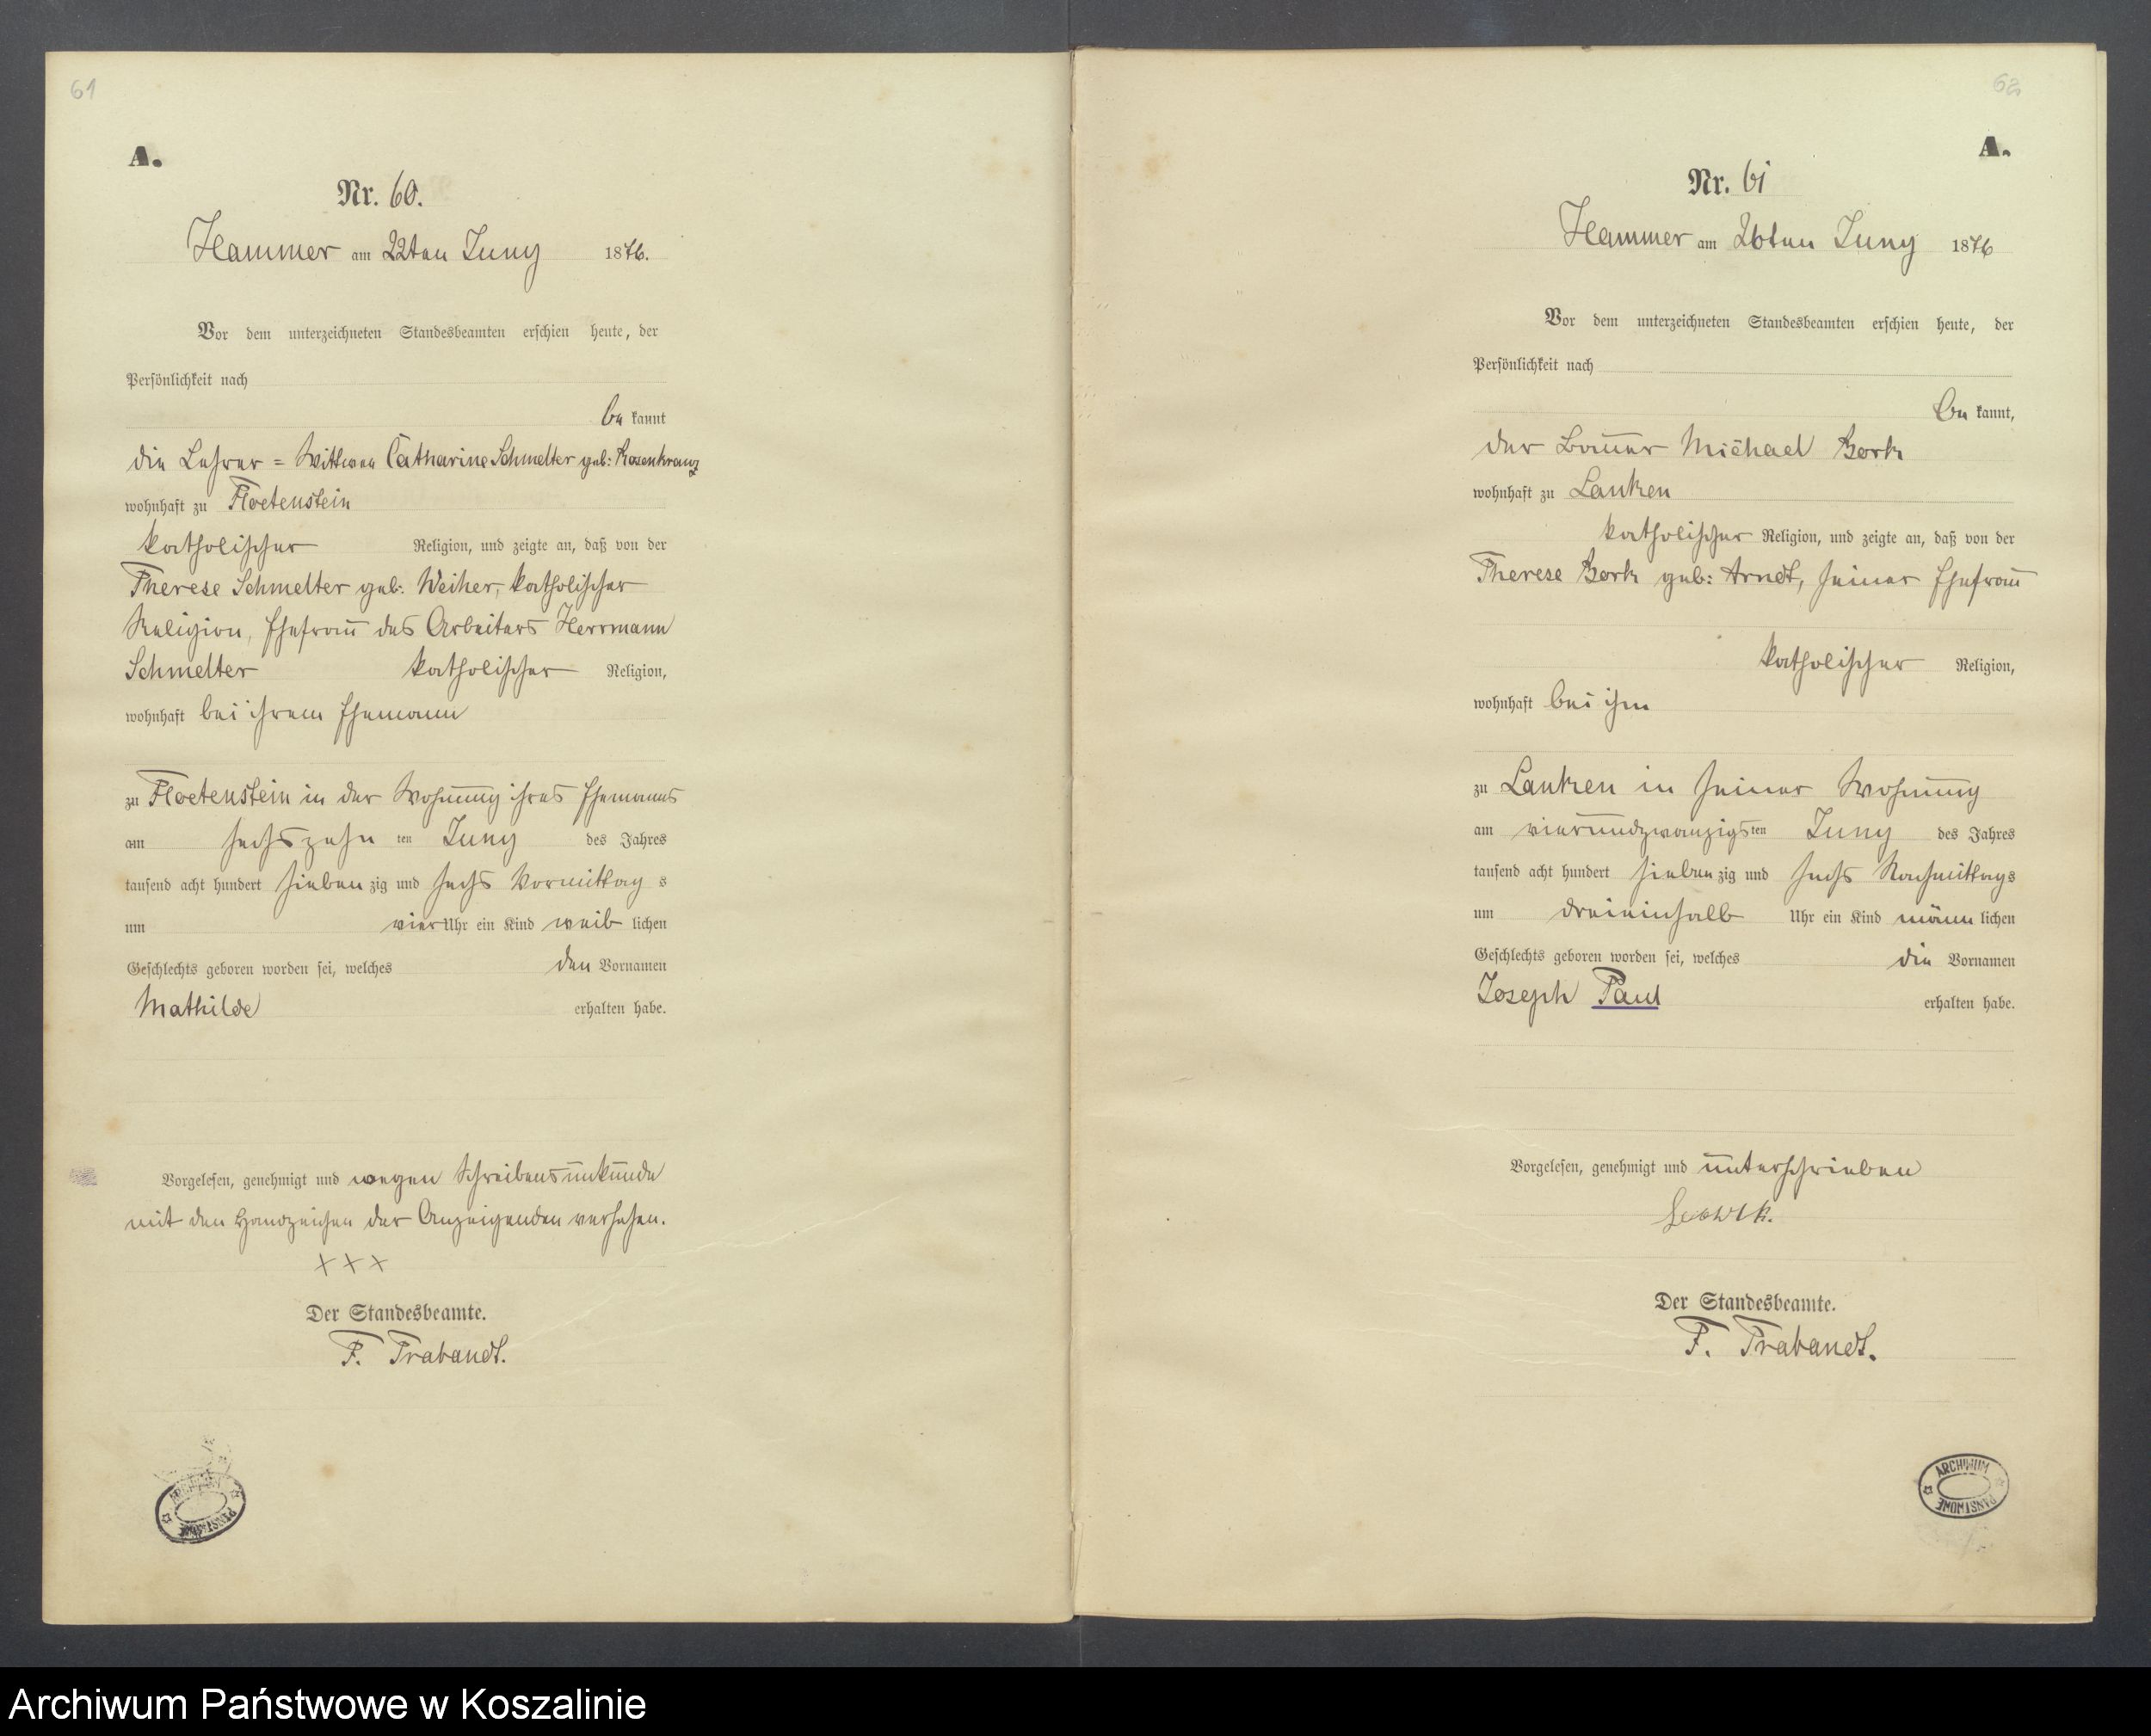 61
A.
Nr. 60.
Hammer am 22ten Juny 1876.
Vor dem unterzeichneten Standesbeamten erschien heute, der
Persönlichkeit nach
be kannt
die Lehrer = Wittwee Catharine Schmelter geb: Rosenkranz
wohnhaft zu Floetenstein
katholischer Religion, und zeigte an, daß von der
Therese Schmelter geb: Weiher, katholischer
Religion, Ehefrau des Arbeiters Herrmann
Schmelter katholischer Religion,
wohnhaft bei ihrem Ehemann
zu Floetenstein in der Wohnung ihres Ehemanns
am sechszehn ten Juny des Jahres
tausend acht hundert sieben zig und sechs Vormittag s
um vier Uhr ein Kind weib lichen
Geschlechts geboren worden sei, welches den Vornamen
Mathilde erhalten habe.
Vorgelesen, genehmigt und wegen Schreibensunkunde
mit den Handzeichen der Anzeigenden versehen.
+++
Der Standesbeamte.
F. Trabandt.
ARCHIWUM PAŃSTWOWE
62
A.
Nr. 61
Hammer am 26ten Juny 1876
Vor dem unterzeichneten Standesbeamten erschien heute, der
Persönlichkeit nach
be kannt,
der Bauer Michael Bork
wohnhaft zu Lanken
katholischer Religion, und zeigte an, daß von der
Therese Bork geb: Arndt, seiner Ehefrau
katholischer Religion,
wohnhaft bei ihm
zu Lanken in seiner Wohnung
am vierundzwanzigs ten Juny des Jahres
tausend acht hundert sieben zig und sechs Nachmittags
um dreieinhalb Uhr ein Kind männ lichen
Geschlechts geboren worden sei, welches die Vornamen
Joseph Paul erhalten habe.
Vorgelesen, genehmigt und unterschrieben
Der Standesbeamte.
F. Trabandt.
ARCHIWUM PAŃSTWOWE
Archiwum Państwowe w Koszalinie